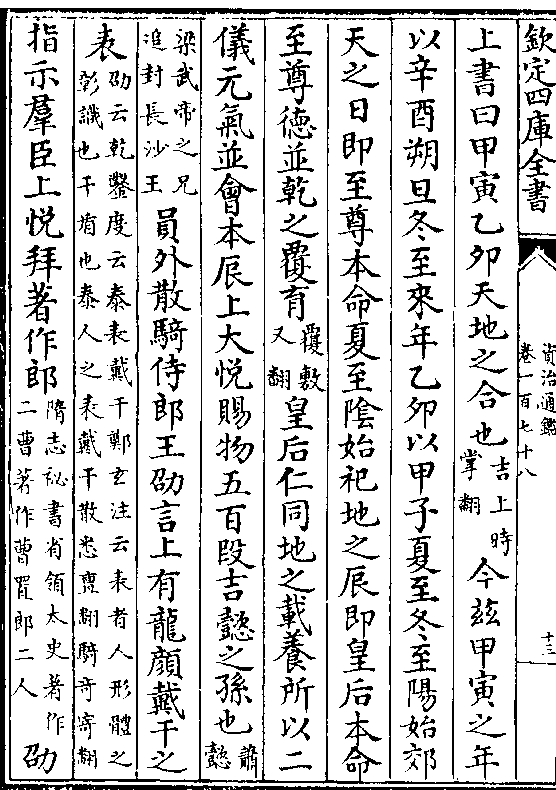 欽定四庫全書
資治通鑑
卷一百七十八
十三
上書曰甲寅乙卯天地之合也吉上時掌翻今兹甲寅之年
以辛酉朔旦冬至來年乙卯以甲子夏至冬至陽始郊
天之日即至尊本命夏至隂始祀地之辰即皇后本命
至尊德並乾之覆育覆敷又翻皇后仁同地之載養所以二
儀元氣並會本辰上大悦賜物五百段吉懿之孫也蕭懿
梁武帝之兄追封長沙王員外散騎侍郎王劭言上有龍顔戴干之
表劭云乾鑿度云泰表戴干鄭玄注云表者人形體之彰識也干楯也泰人之表戴干散悉亶翻騎奇寄翻
指示羣臣上悦拜著作郎隋志祕書省領太史著作二曹著作曹置郎二人劭